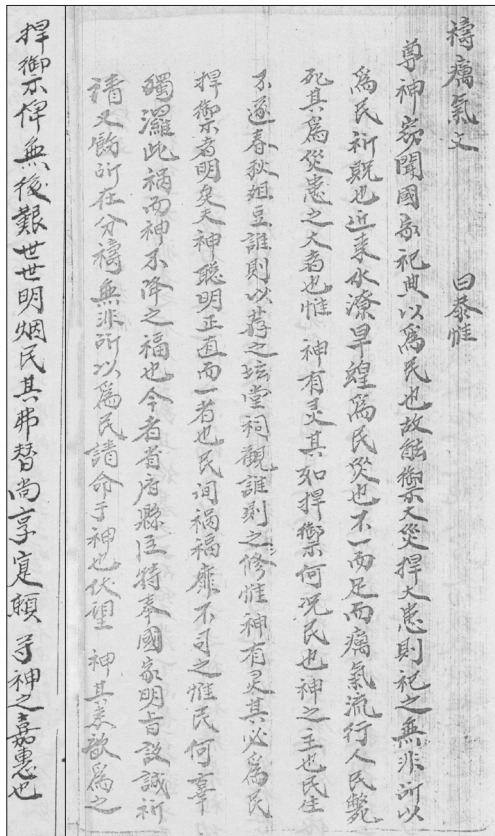 禱癘氣文　曰恭惟
尊神竊聞國家祀典以爲民也故能禦大災捍大患則祀之無非所以
爲民祈貺也近來水潦旱蝗爲民災也不一而足而癘氣流行人民斃
死其爲災患之大者也惟　神有灵其如捍禦何况民也神之主也民生
不遂春秋俎豆誰則以荐之坛堂祠觀誰則之修惟神有灵其必爲民
捍禦者明矣夫神聰明正直而一者也民间禍福靡不司之惟民何辜
獨罹此禍而神不降之福也今者省府縣臣特奉國家明旨設誠祈
禱又飭所在分禱無非所以爲民請命于神也伏望　神其来歆爲之
捍御示俾無後艱世世明烟民其弗替尚享寔賴尊神之嘉惠也